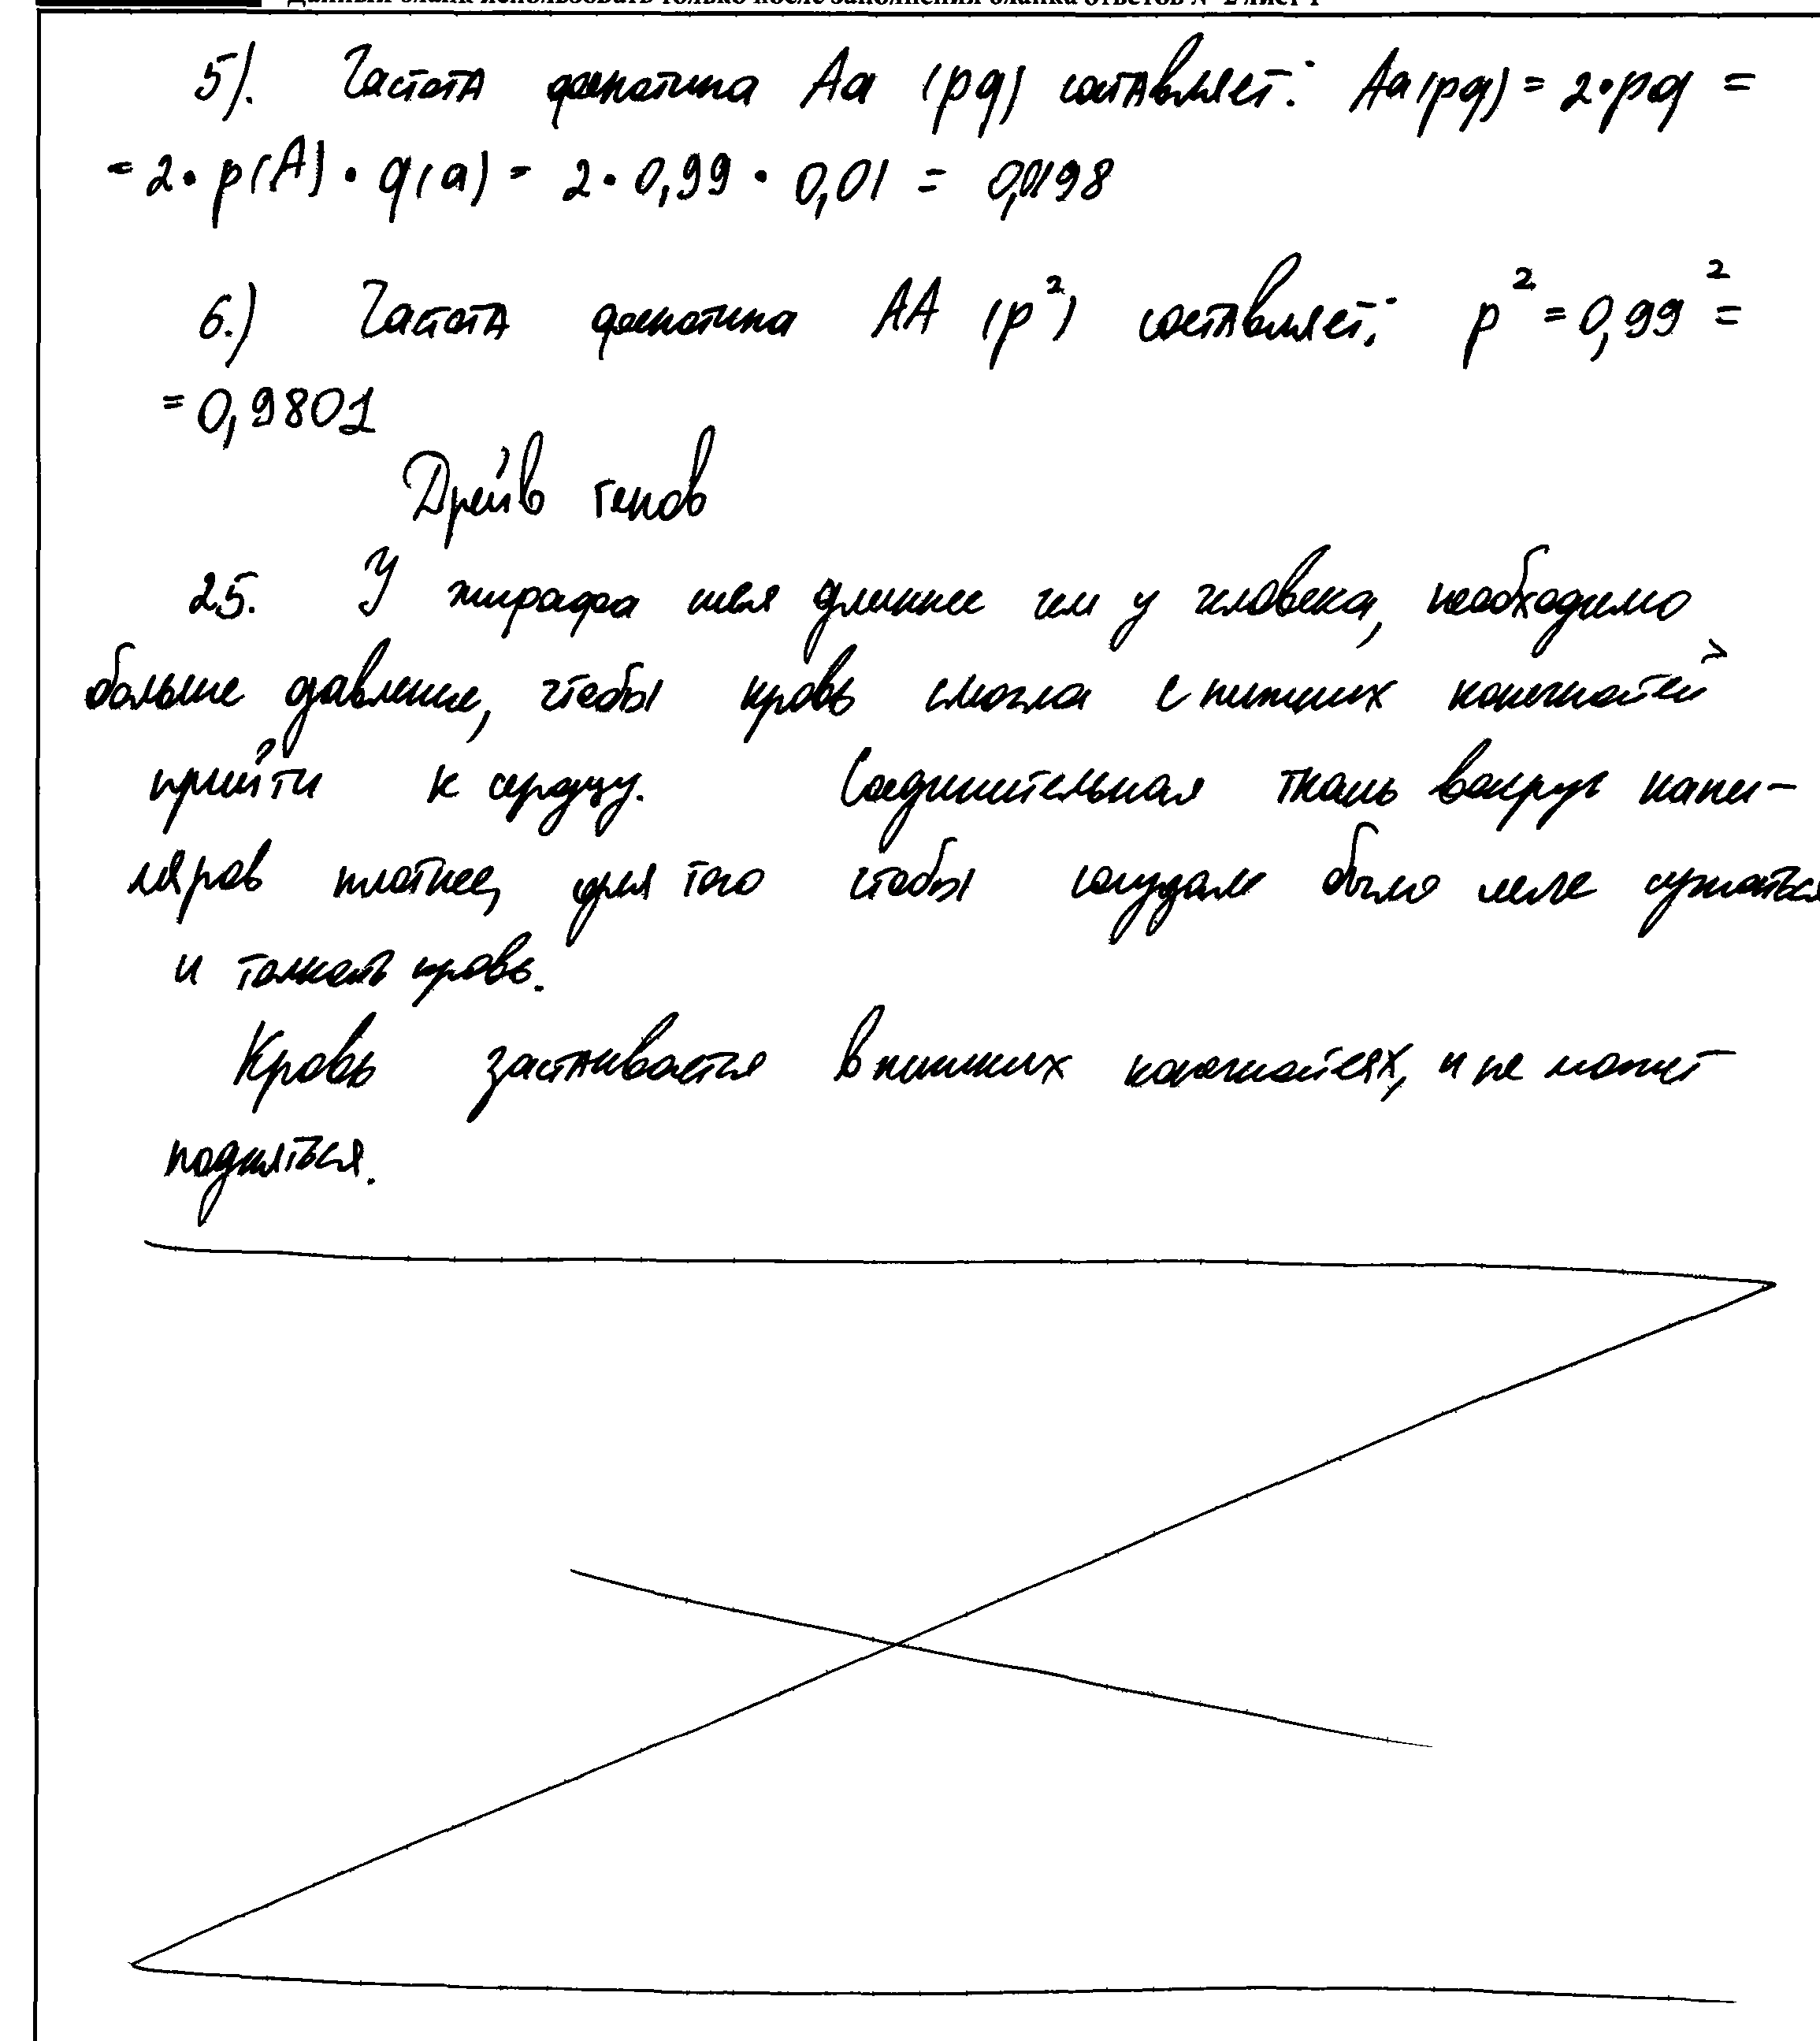 Данный бланк использовать только после заполнения бланка ответов № 2 лист 1
5). Частота фенотипа Aa (pq) составляет: Aa(pq) = 2•pq =
= 2• p(A) • q(a) = 2 • 0,99 • 0,01 = 0,0198
6.) Частота фенотипа AA (p²) составляет: p² = 0,99² =
= 0,9801
Дрейв генов
25. У жирафа шея длиннее чем у человека, необходимо
больше давление, чтобы кровь смогла с нижних конечностей
прийти к сердцу. Соединительная ткань вокруг капи-
ляров плотнее, для того чтобы сосудам было легче сужаться
и толкать кровь.
Кровь застаивается в нижних конечностях, и не может
подняться.